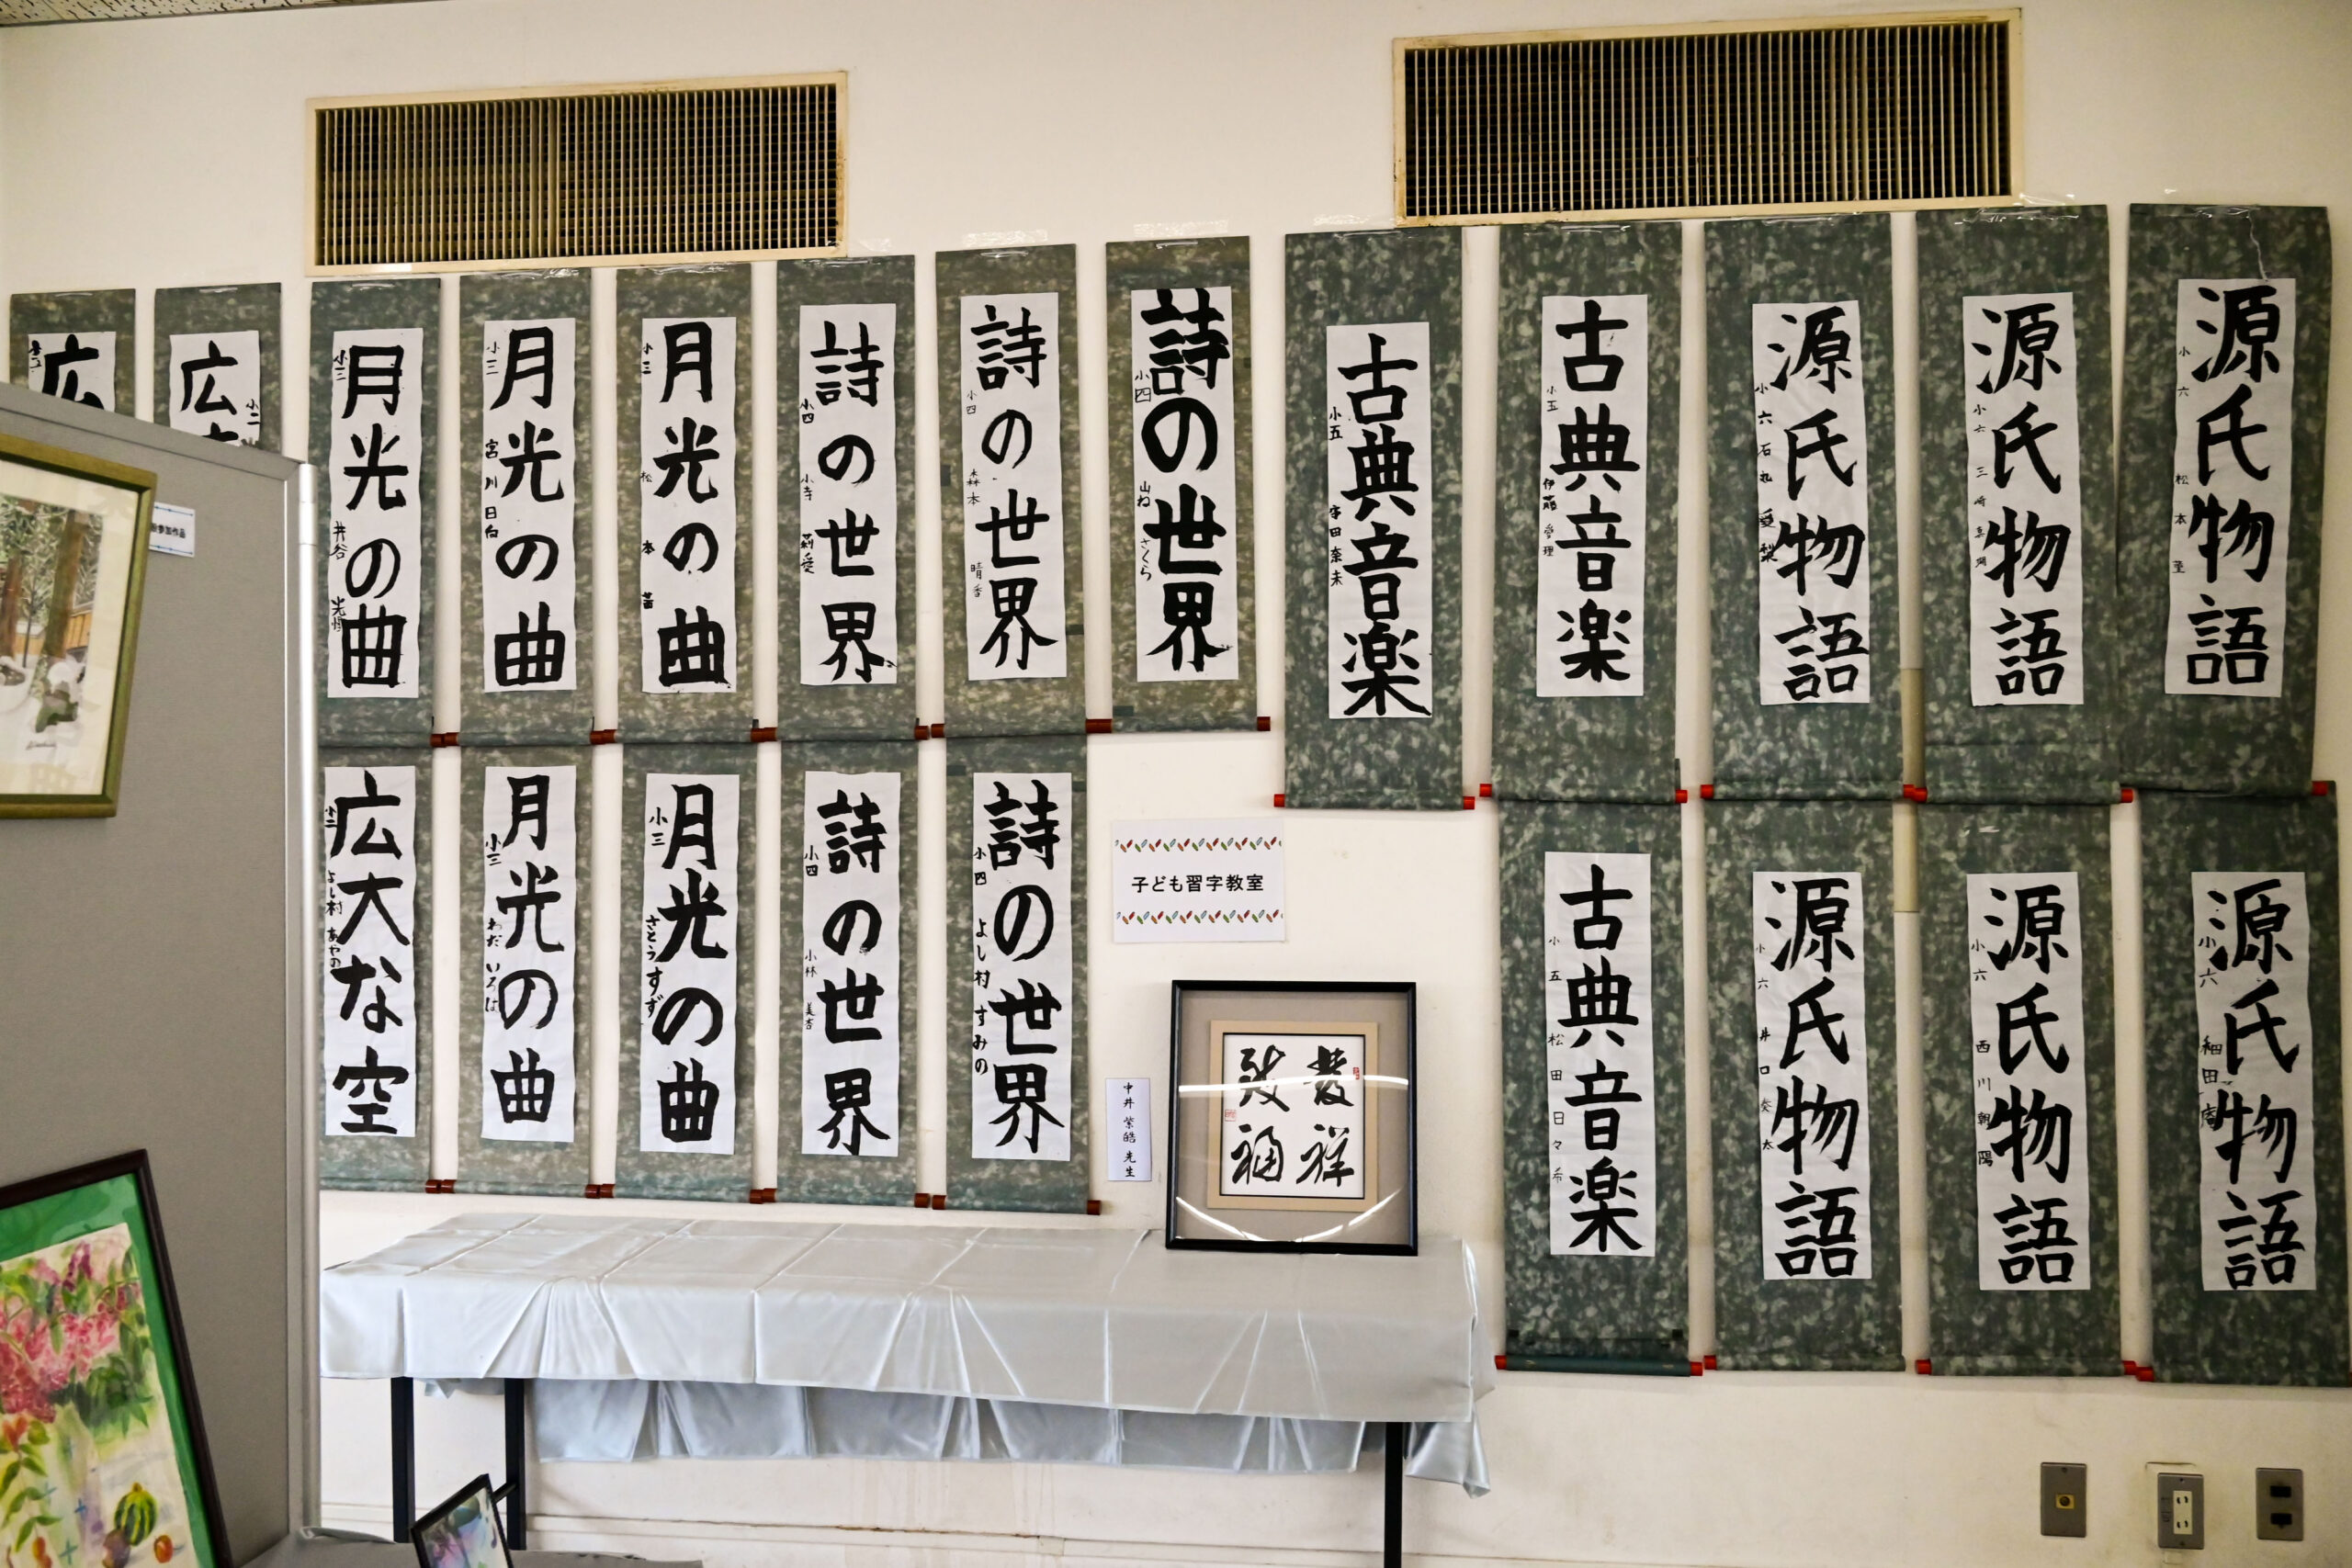 広
小二
広
小二
月光の曲
小三
井谷
月光の曲
小三
宮川日向
月光の曲
小三
松本
詩の世界
小四
小寺
詩の世界
小四
森本 晴香
詩の世界
小四
山ね さくら
古典音楽
小五
宇田奈未
古典音楽
小五
伊藤愛理
源氏物語
小六
石丸愛梨
源氏物語
小六
三崎
源氏物語
小六
松本 至
広大な空
小二
よし村 あやの
月光の曲
小三
わだ いろは
月光の曲
小三
さとう すず
詩の世界
小四
小林 美杏
詩の世界
小四
よし村 すみの
子ども習字教室
中井 紫皓 先生
發祥
致福
古典音楽
小五
松田日々希
源氏物語
小六
井口 奏太
源氏物語
小六
西川朝陽
源氏物語
小六
細田
参加作品